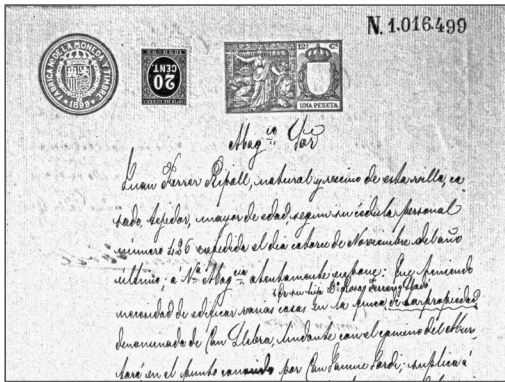 N. 1.016.499
FABRICA NL. DE LA MONEDA Y TIMBRE
* 1899 *
20
CENT
12ª Cª
UNA PESETA
Magco. Sor
Juan Ferrer Ripoll, natural y vecino de esta villa, ca
sado, tejedor, mayor de edad, segun su cedula personal
número 426 expedida el dia catorce de Noviembre del año
último; á Va. Magcia. atentamente expone: Que teniendo
de su hija Da. Rosa Ferrer y
necesidad de edificar varias casas en la finca de su propiedad
denominada de Can Llebra, lindante con el camino del
en el punto conocido por Can Jaume Jordi; suplica á